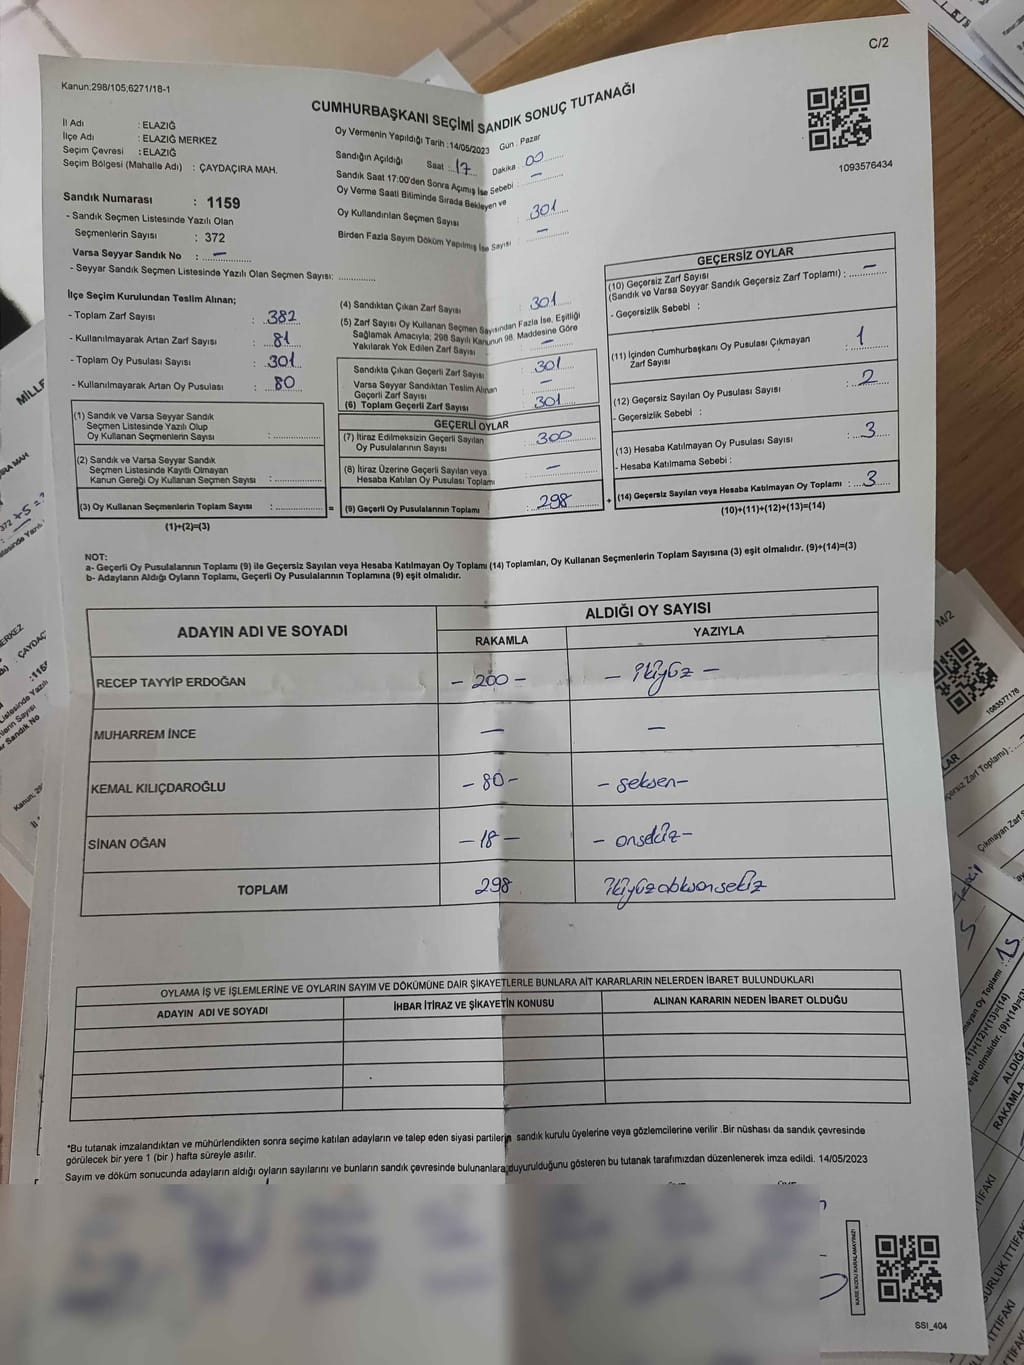 C/2
Kanun:298/105;6271/18-1
CUMHURBAŞKANI SEÇİMİ SANDIK SONUÇ TUTANAĞI
İl Adı : ELAZIĞ
İlçe Adı : ELAZIĞ MERKEZ
Seçim Çevresi : ELAZIĞ
Seçim Bölgesi (Mahalle Adı) : ÇAYDAÇIRA MAH.
Oy Vermenin Yapıldığı Tarih :14/05/2023 Gün : Pazar
Sandığın Açıldığı Saat : 17 Dakika : 00
Sandık Saat 17:00'den Sonra Açılmış İse Sebebi : —
Oy Verme Saati Bitiminde Sırada Bekleyen ve
Oy Kullandırılan Seçmen Sayısı : 301
Birden Fazla Sayım Döküm Yapılmış İse Sayısı : —
1093576434
Sandık Numarası : 1159
- Sandık Seçmen Listesinde Yazılı Olan
Seçmenlerin Sayısı : 372
Varsa Seyyar Sandık No : —
- Seyyar Sandık Seçmen Listesinde Yazılı Olan Seçmen Sayısı: ..............
İlçe Seçim Kurulundan Teslim Alınan;
- Toplam Zarf Sayısı : 382
- Kullanılmayarak Artan Zarf Sayısı : 81
- Toplam Oy Pusulası Sayısı : 301
- Kullanılmayarak Artan Oy Pusulası : 80
(1) Sandık ve Varsa Seyyar Sandık
Seçmen Listesinde Yazılı Olup
Oy Kullanan Seçmenlerin Sayısı :..............
(2) Sandık ve Varsa Seyyar Sandık
Seçmen Listesinde Kayıtlı Olmayan
Kanun Gereği Oy Kullanan Seçmen Sayısı :..............
(3) Oy Kullanan Seçmenlerin Toplam Sayısı :.............. =
(1)+(2)=(3)
(4) Sandıktan Çıkan Zarf Sayısı : 301
(5) Zarf Sayısı Oy Kullanan Seçmen Sayısından Fazla İse, Eşitliği
Sağlamak Amacıyla; 298 Sayılı Kanunun 98. Maddesine Göre
Yakılarak Yok Edilen Zarf Sayısı : —
Sandıkta Çıkan Geçerli Zarf Sayısı : 301
Varsa Seyyar Sandıktan Teslim Alınan
Geçerli Zarf Sayısı : —
(6) Toplam Geçerli Zarf Sayısı : 301
GEÇERLİ OYLAR
(7) İtiraz Edilmeksizin Geçerli Sayılan
Oy Pusulalarının Sayısı : 300
(8) İtiraz Üzerine Geçerli Sayılan veya
Hesaba Katılan Oy Pusulası Toplamı : —
(9) Geçerli Oy Pusulalarının Toplamı : 298 +
GEÇERSİZ OYLAR
(10) Geçersiz Zarf Sayısı
(Sandık ve Varsa Seyyar Sandık Geçersiz Zarf Toplamı) : —
- Geçersizlik Sebebi :
(11) İçinden Cumhurbaşkanı Oy Pusulası Çıkmayan
Zarf Sayısı : 1
(12) Geçersiz Sayılan Oy Pusulası Sayısı : 2
- Geçersizlik Sebebi :
(13) Hesaba Katılmayan Oy Pusulası Sayısı : 3
- Hesaba Katılmama Sebebi :
(14) Geçersiz Sayılan veya Hesaba Katılmayan Oy Toplamı : 3
(10)+(11)+(12)+(13)=(14)
NOT:
a- Geçerli Oy Pusulalarının Toplamı (9) ile Geçersiz Sayılan veya Hesaba Katılmayan Oy Toplamı (14) Toplamları, Oy Kullanan Seçmenlerin Toplam Sayısına (3) eşit olmalıdır. (9)+(14)=(3)
b- Adayların Aldığı Oyların Toplamı, Geçerli Oy Pusulalarının Toplamına (9) eşit olmalıdır.
ADAYIN ADI VE SOYADI
ALDIĞI OY SAYISI
RAKAMLA YAZIYLA
RECEP TAYYİP ERDOĞAN - 200 - - ikiyüz -
MUHARREM İNCE — —
KEMAL KILIÇDAROĞLU - 80 - - seksen -
SİNAN OĞAN - 18 - - onsekiz -
TOPLAM 298 ikiyüzdoksansekiz
OYLAMA İŞ VE İŞLEMLERİNE VE OYLARIN SAYIM VE DÖKÜMÜNE DAİR ŞİKAYETLERLE BUNLARA AİT KARARLARIN NELERDEN İBARET BULUNDUKLARI
ADAYIN ADI VE SOYADI İHBAR İTİRAZ VE ŞİKAYETİN KONUSU ALINAN KARARIN NEDEN İBARET OLDUĞU
*Bu tutanak imzalandıktan ve mühürlendikten sonra seçime katılan adayların ve talep eden siyasi partilerin sandık kurulu üyelerine veya gözlemcilerine verilir .Bir nüshası da sandık çevresinde
görülecek bir yere 1 (bir ) hafta süreyle asılır.
Sayım ve döküm sonucunda adayların aldığı oyların sayılarını ve bunların sandık çevresinde bulunanlara duyurulduğunu gösteren bu tutanak tarafımızdan düzenlenerek imza edildi. 14/05/2023
KARE KODU KARALAMAYINIZ!
SSI_404
M/2
1083577176